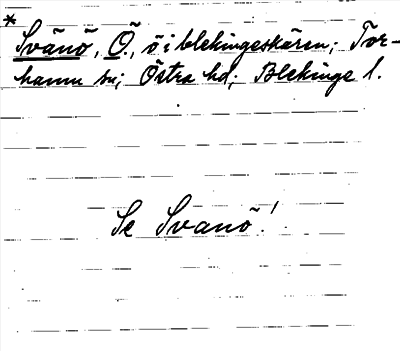 * Svänö, Ö., ö i blekingeskären; Tor-
hamn sn; Östra hd; Blekinge l.
Se Svanö!